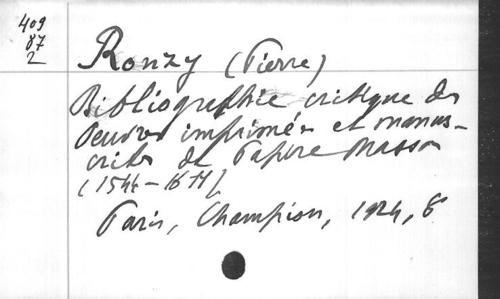 409
87
2
Ronzy (Pierre)
Bibliographie critique des
Oeuvres imprimées et manus-
crites de Papire Masson
(1544-1611)
Paris, Champion, 1924, 8°